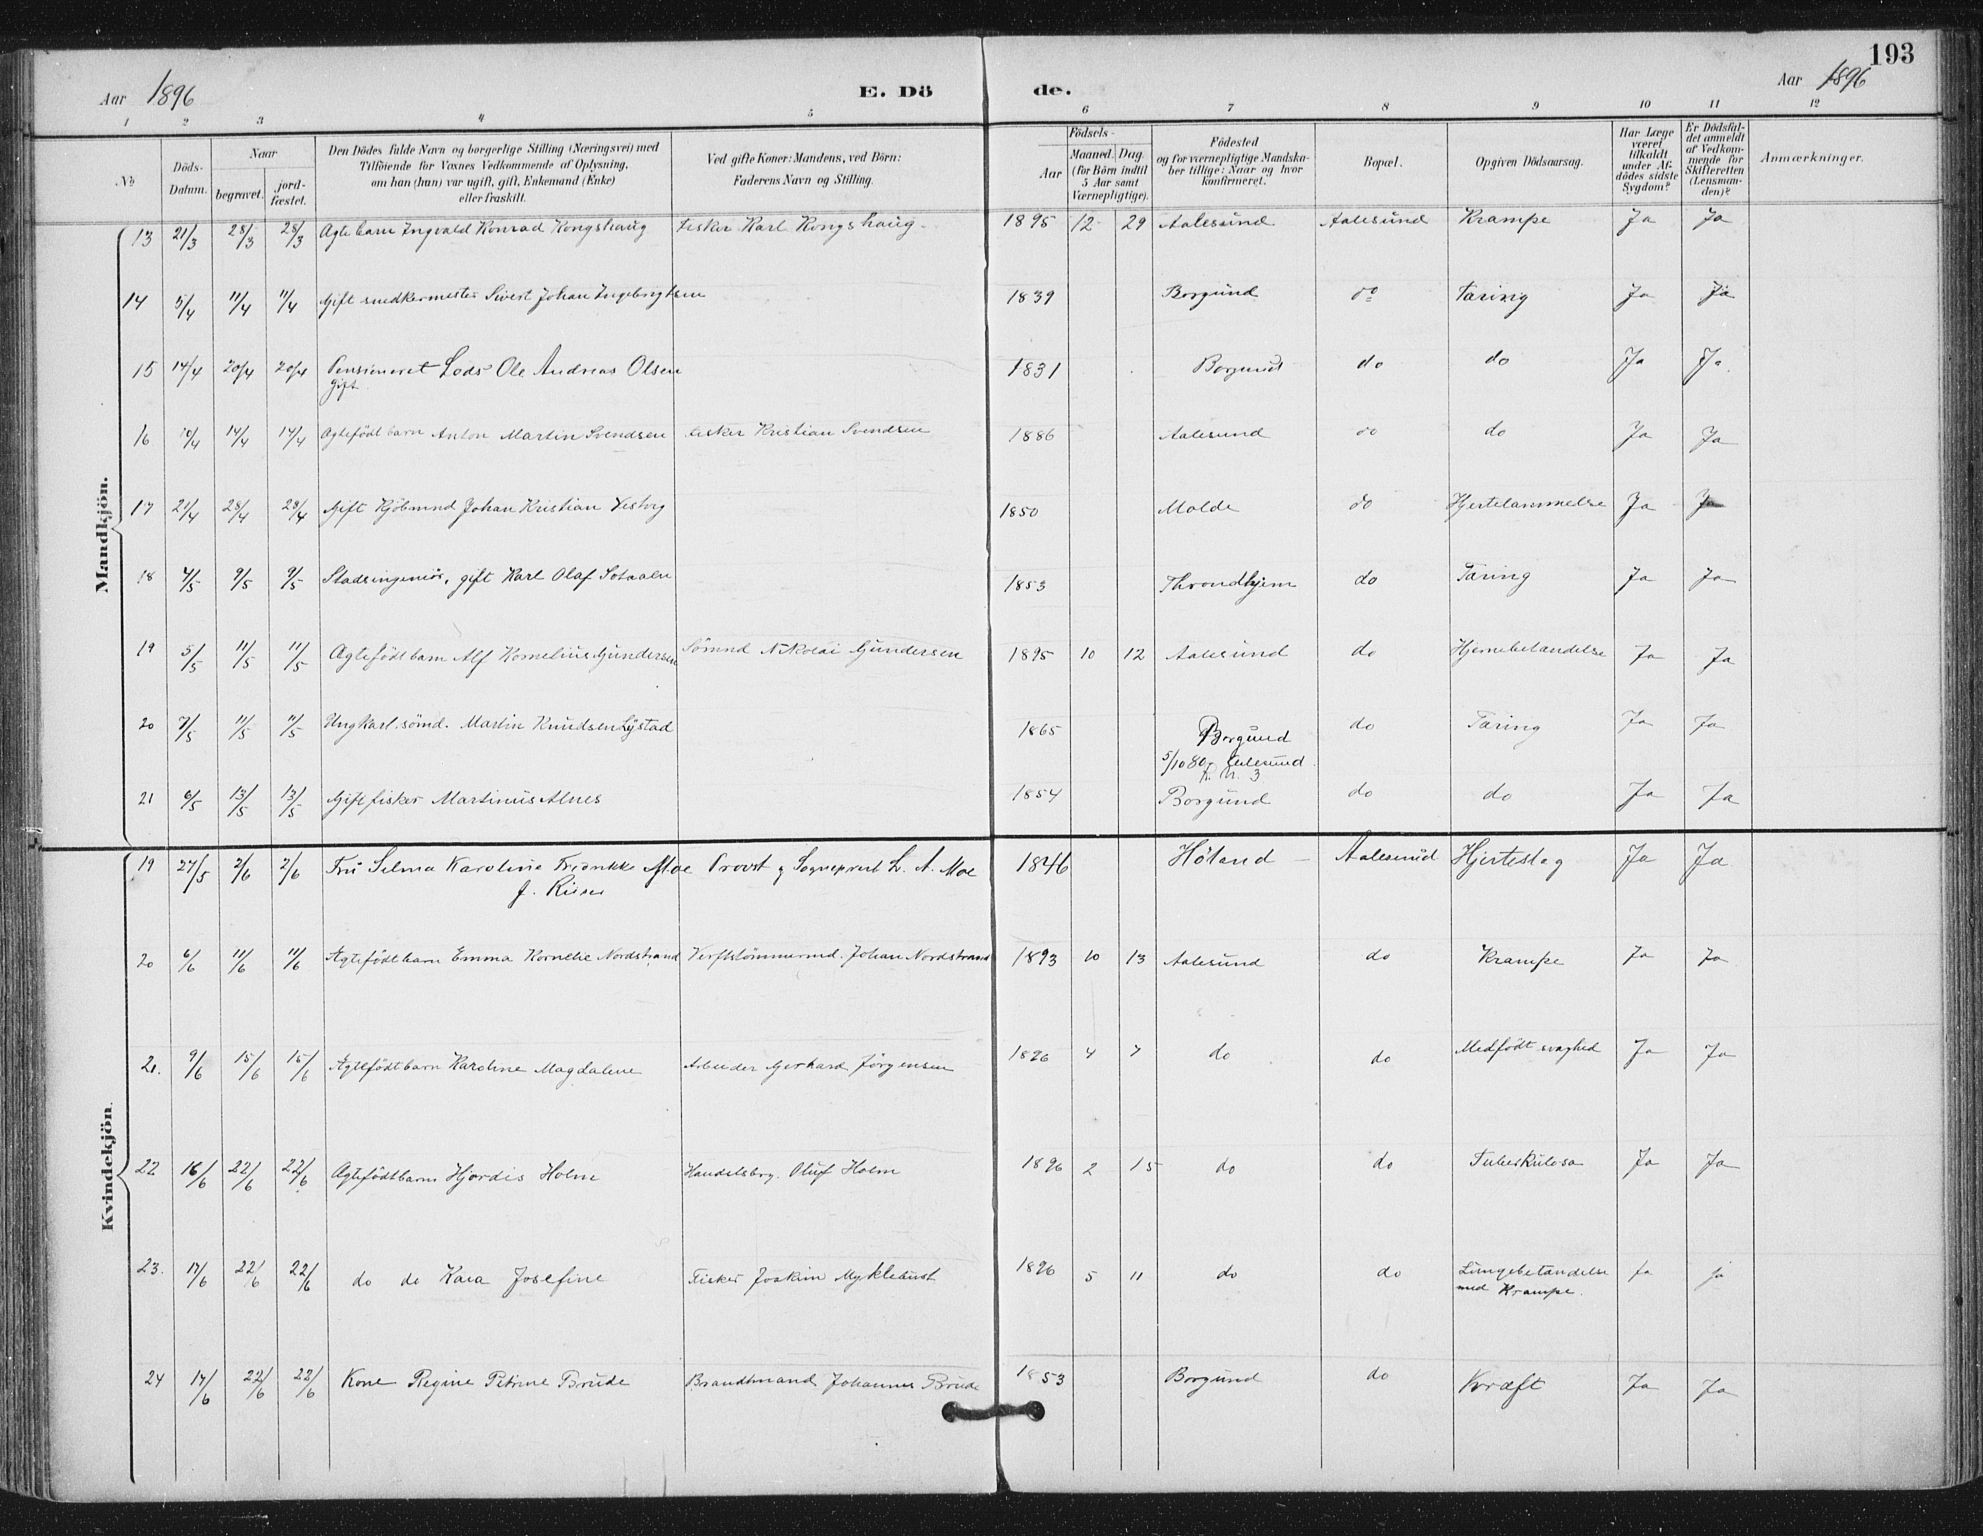 193
Aar 1896 E. Dö de. Aar 1896
1 2 3 4 5 6 7 8 9 10 11 12
No
Döds-Datum.
Naar
begravet.
jord-fæstet.
Den Dödes fulde Navn og borgerlige Stilling (Næringsvei) med
Tilföiende for Voxnes Vedkommende af Oplysning,
om han (hun) var ugift, gift, Enkemand (Enke)
eller fraskilt.
Ved gifte Koner: Mandens, ved Börn:
Faderens Navn og Stilling.
Födsels-
Aar
Maaned. Dag.
(for Börn indtil
5 Aar samt
Værnepligtige).
Födested
og for værnepligtige Mandska-
ber tillige: Naar og hvor
konfirmeret.
Bopæl.
Opgiven Dödsaarsag.
Har Læge
været
tilkaldt
under Af-
dödes sidste
Sygdom?
Er Dödsfal-
det anmeldt
af Vedkom-
mende for
Skifteretten
(Lensman-
den)?
Anmærkninger.
Mandkjön.
13 21/3 28/3 28/3 Ægtebarn Ingvald Konrad Kongshaug Fisker Karl Kongshaug 1895 12 29 Aalesund Aalesund Krampe Ja Ja
14 5/4 11/4 11/4 Gift snedkermester Sivert Johan Ingebrigtsen 1839 Borgund do Tæring Ja Ja
15 14/4 20/4 20/4 Pensioneret Lods Ole Andreas Olsen 1831 Borgund do do Ja Ja
gift
16 10/4 14/4 14/4 Ægtefödt barn Anton Martin Svendsen Fisker Kristian Svendsen 1886 Aalesund do do Ja Ja
17 21/4 28/4 28/4 Gift Kjöbmnd Johan Kristian Vestvig 1850 Molde do Hjertelammelse Ja Ja
18 4/5 9/5 9/5 Stadsingeniör, gift Karl Olaf 1853 Throndhjem do Tæring Ja Ja
19 5/5 11/5 11/5 Ægtefödt barn Alf Kornelius Gundersen Sömnd Nikolai Gundersen 1895 10 12 Aalesund do Hjernebetændelse Ja Ja
20 7/5 11/5 11/5 Ungkarl. sömd. Martin Knudsen Lystad 1865 Borgund do Tæring Ja Ja
5/10 80 Aalesund
n. 3
21 6/5 13/5 13/5 Gift fisker Martinus Alnes 1854 Borgund do do Ja Ja
Kvindekjön.
19 27/5 2/6 2/6 Fru Selma Karoline Fredrikke Moe Provst og Sogneprest L. A. Moe 1846 Höland Aalesund Hjerteslag Ja Ja
f.
20 6/6 11/6 11/6 Ægtefödt barn Emma Kornelie Nordstrand Verftstömmermd. Johan Nordstrand 1893 10 13 Aalesund do Krampe Ja Ja
21. 9/6 15/6 15/6 Ægtefödt barn Karoline Magdalene Arbeider Gerhard Jörgensen 1896 4 7 do do Medfödt svaghed Ja Ja
22 16/6 22/6 22/6 Ægtefödt barn Hjördis Holm Handelsbrg. Oluf Holm 1896 2 15 do do Tuberkulosa Ja Ja
23. 17/6 22/6 22/6 do do Kaia Josefine Fisker Joakim Myklebust 1896 5 11 do do Lungebetændelse ja ja
med Krampe.
24 17/6 22/6 22/6 Kone Regine Petrine Brude Brandtmand Johannes Brude 1853 Borgund do Kræft Ja Ja